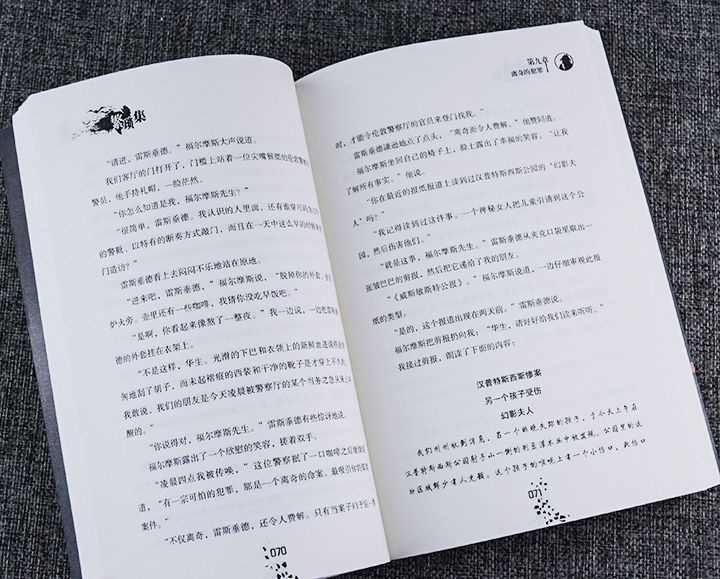 集
“请进，雷斯垂德。”福尔摩斯大声说道。
我们客厅的门打开了，门槛上站着一位尖嘴猴腮的伦敦警
警员，他手持礼帽，一脸茫然。
“你怎么知道是我，福尔摩斯先生？”
“很简单，雷斯垂德。我认识的人里面，还有谁穿
的警靴、以特有的断奏方式敲门，而且在一天中这么早的时
门造访？”
雷斯垂德看上去闷闷不乐地站在原地。
“进来吧，雷斯垂德，”福尔摩斯说，“脱掉你的外套，
炉火旁。壶里还有一些咖啡，我猜你没吃早饭吧。”
“是啊，你看起来像熬了一整夜。”我一边说，一边把雷斯垂
德的外套挂在衣架上。
“不是这样，华生。光滑的下巴和衣领上的新鲜血迹说明
匆地刮了胡子，而未起褶痕的西装和干净的靴子是才穿上不久的。
我敢说，我们的朋友是今天凌晨被警察厅的某个当务之急从床上
醒的。”
“你说得对，福尔摩斯先生。”雷斯垂德有些惊讶地说。
福尔摩斯露出了一个欣慰的笑容，搓着双手。
“凌晨四点我被传唤，”这位警察抿了一口咖啡之后继续
道，“有一宗可怕的犯罪，那是一个离奇的命案。最吸引你的那类
案件。”
“不仅离奇，雷斯垂德，还令人费解。只有当案子
070
第九章
离奇的犯罪
时，才能令伦敦警察厅的官员来登门找我。”
雷斯垂德谦逊地点了点头，“离奇而令人费解。”他赞同道。
福尔摩斯坐回自己的椅子上，脸上露出了幸福的笑容。“让我
了解所有事实。”他说。
“你在最近的报纸报道上读到过汉普特斯西斯公园的‘幻影夫
人’吗？”
“我记得读到过这件事。一个神秘女人把儿童引诱到这个公
园，然后伤害他们。”
“就是这事，福尔摩斯先生。”雷斯垂德从夹克口袋里取出一
张皱巴巴的剪报，然后把它递给了我的朋友。
“《威斯敏斯特公报》。”福尔摩斯说道，一边仔细审视此报
纸的类型。
“是的，这个报道出现在两天前。”雷斯垂德说。
福尔摩斯把剪报扔向我：“华生，请好好给我们读来听听。”
我接过剪报，朗读了下面的内容：
汉普特斯西斯惨案
另一个孩子受伤
幻影夫人
我们刚刚收到消息，另一个昨晚失踪的孩子，于今天上午在
汉普特斯西斯公园射手山一侧的荆豆灌木丛中被发现，公园里的这
地区域鲜少有人光顾。这个孩子的喉咙上有一个小伤口，此伤口
071